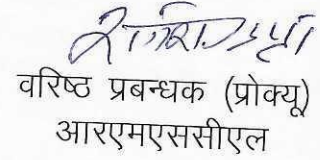 वरिष्ठ प्रबन्धक (प्रोक्यू)
आरएमएससीएल